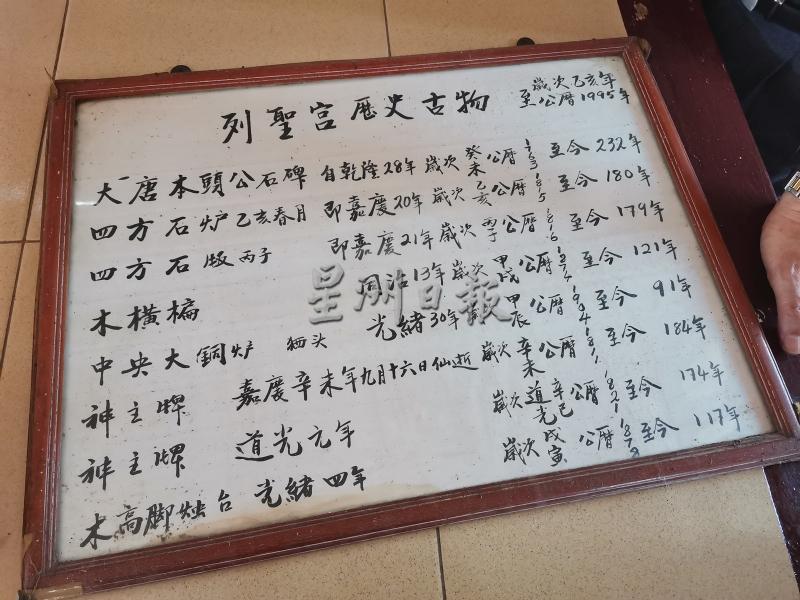 列聖宮歷史古物
歲次乙亥年
至公曆1995年
大唐本頭公石碑 自乾隆28年 歲次癸未 公曆1763 至今232年
四方石炉 乙亥春月 即嘉慶20年 歲次乙亥 公曆1815 至今180年
四方石版 丙子 即嘉慶21年 歲次丙子 公曆1816 至今179年
木橫楄 同治13年 歲次甲戌 公曆1874 至今121年
中央大銅炉 狮头 光緒30年 歲次甲辰 公曆1904 至今91年
神主牌 嘉慶辛未年九月十六日仙逝 歲次辛未 公曆1811 至今184年
神主牌 道光元年 歲次道光辛巳 公曆1821 至今174年
木高脚烛台 光緒四年 歲次戊寅 公曆1878 至今117年
星洲日報